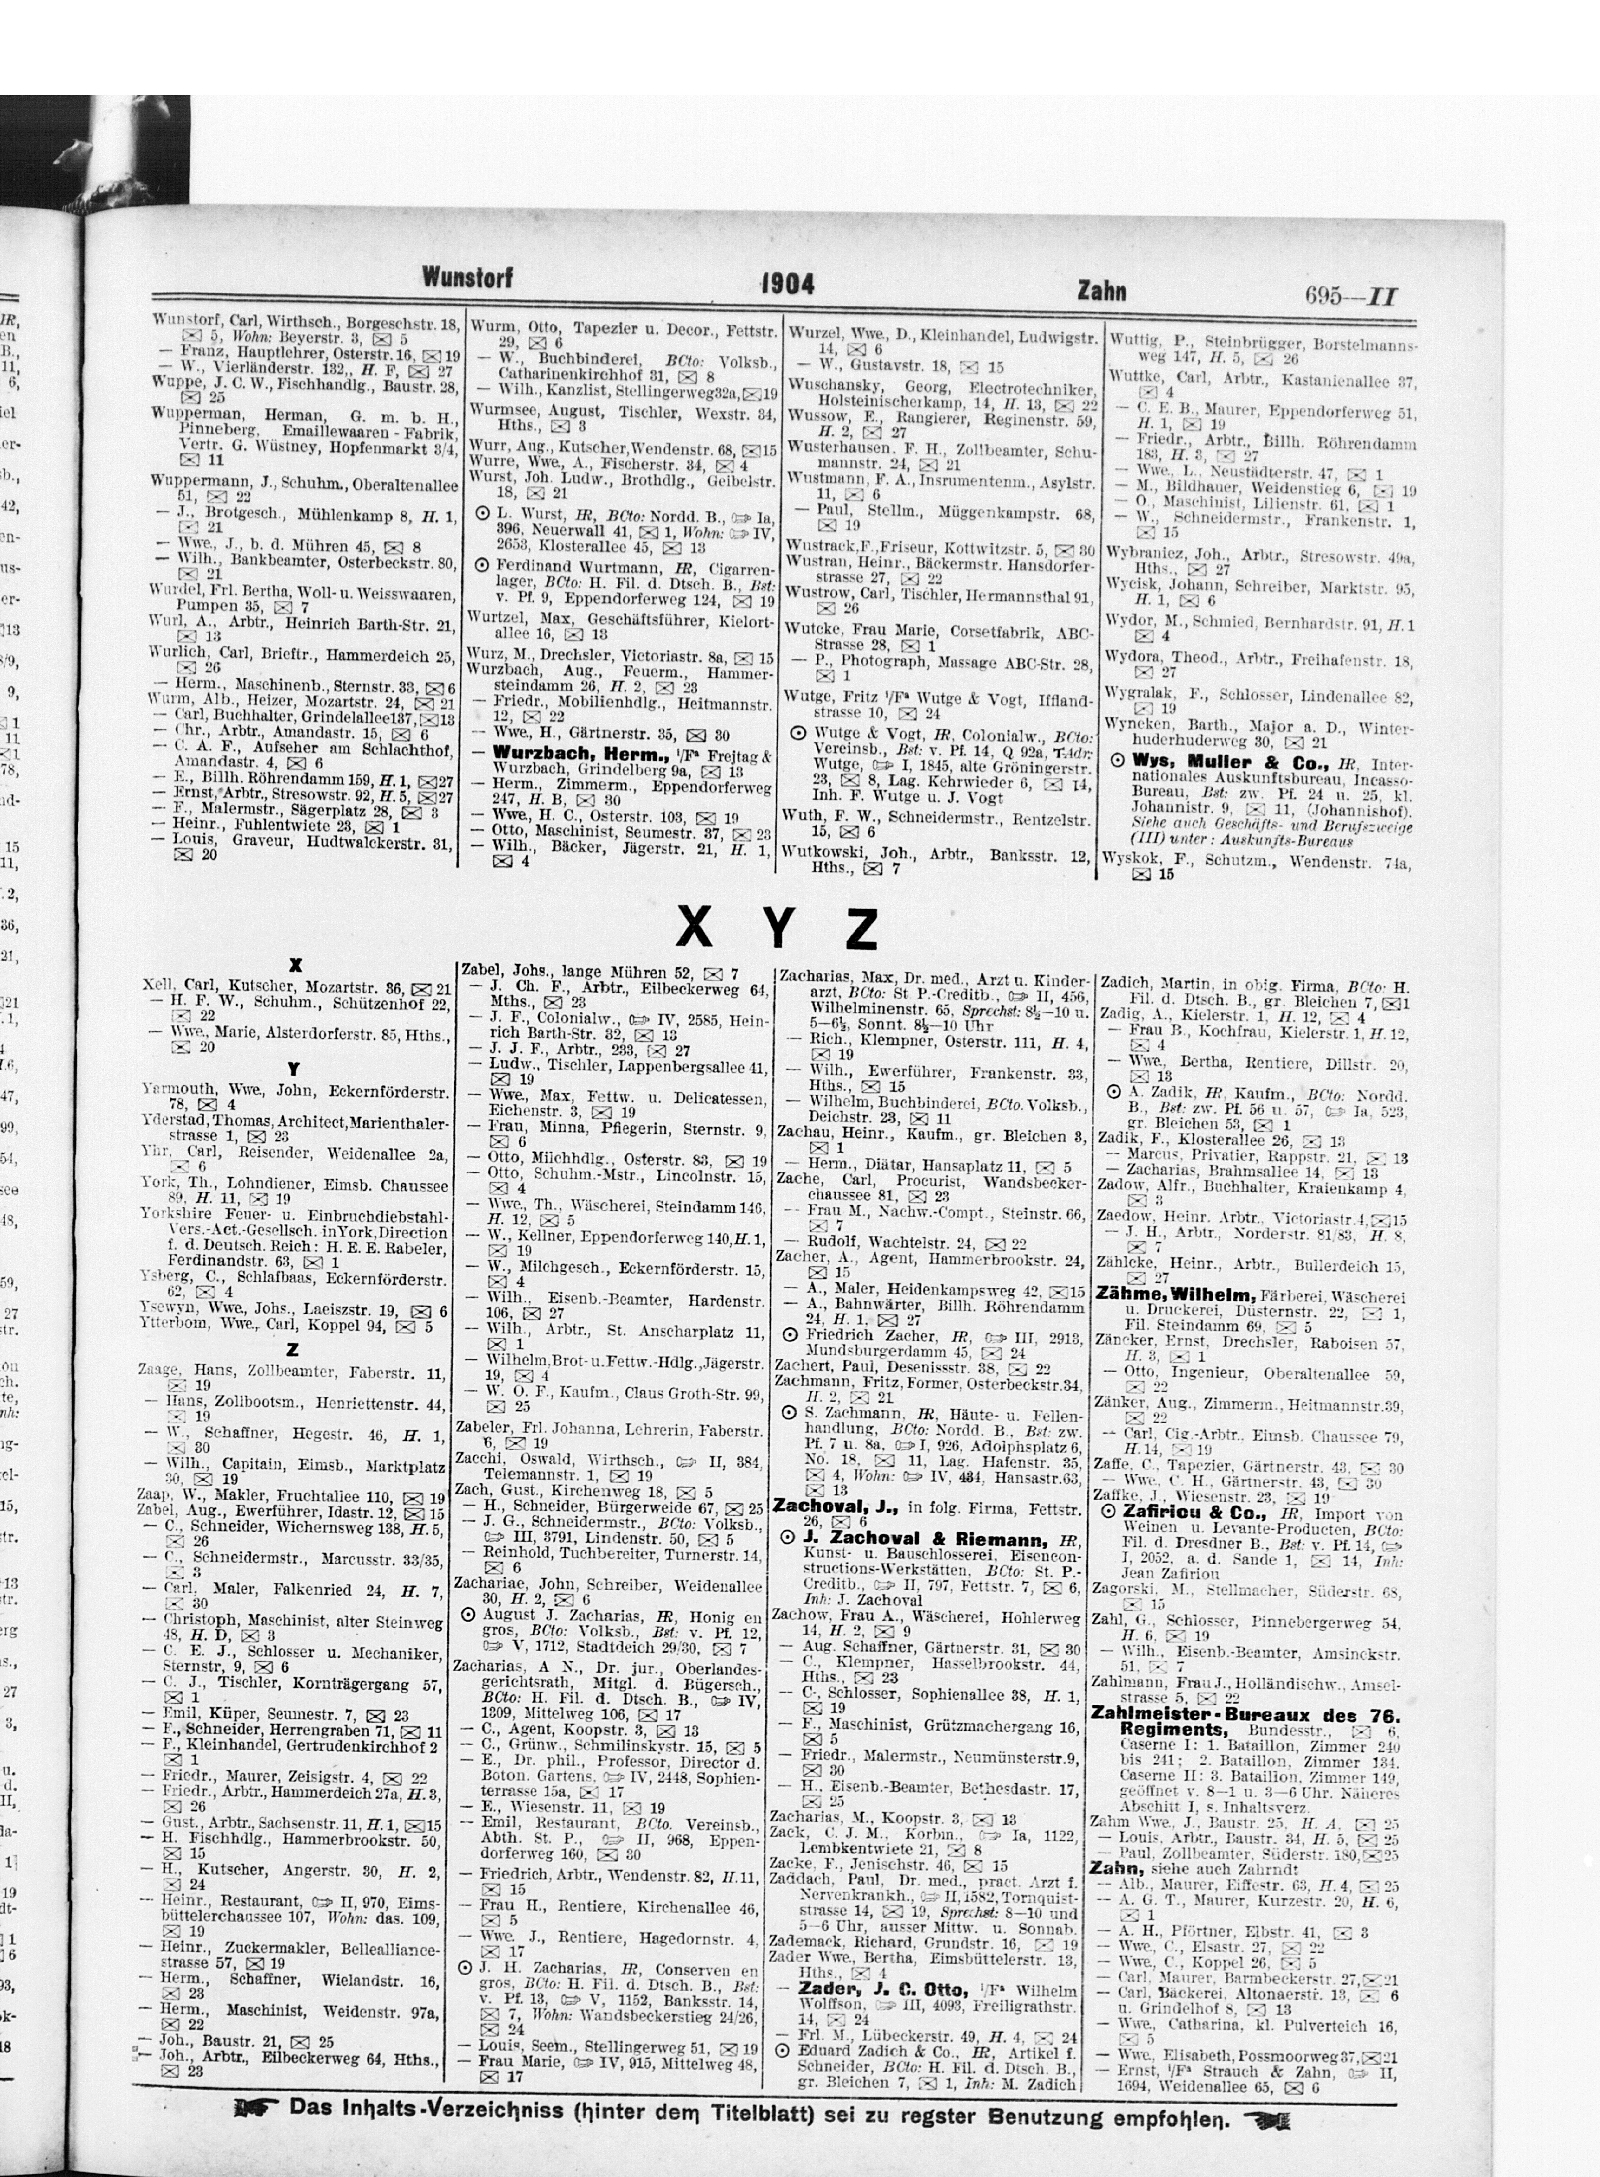 Wunstorf 1904 Zahn 695—II
Wunstorf, Carl, Wirthsch., Borgeschstr. 18,
✉ 5, Wohn: Beyerstr. 3, ✉ 5
— Franz, Hauptlehrer, Osterstr. 16, ✉ 19
— W., Vierländerstr. 132,, H. F, ✉ 27
Wuppe, J. C. W., Fischhandlg., Baustr. 28,
✉ 25
Wupperman, Herman, G. m. b. H.,
Pinneberg, Emaillewaaren-Fabrik,
Vertr. G. Wüstney, Hopfenmarkt 3/4,
✉ 11
Wuppermann, J., Schuhm., Oberaltenallee
51, ✉ 22
— J., Brotgesch., Mühlenkamp 8, H. 1,
✉ 21
— Wwe., J., b. d. Mühren 45, ✉ 8
— Wilh., Bankbeamter, Osterbeckstr. 80,
✉ 21
Wurdel, Frl. Bertha, Woll- u. Weisswaaren,
Pumpen 35, ✉ 7
Wurl, A., Arbtr., Heinrich Barth-Str. 21,
✉ 13
Wurlich, Carl, Brieftr., Hammerdeich 25,
✉ 26
— Herm., Maschinenb., Sternstr. 33, ✉ 6
Wurm, Alb., Heizer, Mozartstr. 24, ✉ 21
— Carl, Buchhalter, Grindelallee 137, ✉ 13
— Chr., Arbtr., Amandastr. 15, ✉ 6
— C. A. F., Aufseher am Schlachthof,
Amandastr. 4, ✉ 6
— E., Billh. Röhrendamm 159, H. 1, ✉ 27
— Ernst, Arbtr., Stresowstr. 92, H. 5, ✉ 27
— F., Malermstr., Sägerplatz 28, ✉ 3
— Heinr., Fuhlentwiete 23, ✉ 1
— Louis, Graveur, Hudtwalckerstr. 31,
✉ 20
Wurm, Otto, Tapezier u. Decor., Fettstr.
29, ✉ 6
— W., Buchbinderei, BCto: Volksb.,
Catharinenkirchhof 31, ✉ 8
— Wilh., Kanzlist, Stellingerweg 32a, ✉ 19
Wurmsee, August, Tischler, Wexstr. 34,
Hths., ✉ 3
Wurr, Aug., Kutscher, Wendenstr. 68, ✉ 15
Wurre, Wwe., A., Fischerstr. 34, ✉ 4
Wurst, Joh. Ludw., Brothdlg., Geibelstr.
18, ✉ 21
⊙ L. Wurst, HR, BCto: Nordd. B., ☞ Ia,
396, Neuerwall 41, ✉ 1, Wohn: ☞ IV,
2653, Klosterallee 45, ✉ 13
⊙ Ferdinand Wurtmann, HR, Cigarren-
lager, BCto: H. Fil. d. Dtsch. B., Bst:
v. Pf. 9, Eppendorferweg 124, ✉ 19
Wurtzel, Max, Geschäftsführer, Kielort-
allee 16, ✉ 13
Wurz, M., Drechsler, Victoriastr. 8a, ✉ 15
Wurzbach, Aug., Feuerm., Hammer-
steindamm 26, H. 2, ✉ 23
— Friedr., Mobilienhdlg., Heitmannstr.
12, ✉ 22
— Wwe., H., Gärtnerstr. 35, ✉ 30
— Wurzbach, Herm., i/Fa Freitag &
Wurzbach, Grindelberg 9a, ✉ 13
— Herm., Zimmerm., Eppendorferweg
247, H. B, ✉ 30
— Wwe., H. C., Osterstr. 103, ✉ 19
— Otto, Maschinist, Seumestr. 37, ✉ 23
— Wilh., Bäcker, Jägerstr. 21, H. 1,
✉ 4
Wurzel, Wwe., D., Kleinhandel, Ludwigstr.
14, ✉ 6
— W., Gustavstr. 18, ✉ 15
Wuschansky, Georg, Electrotechniker,
Holsteinischerkamp, 14, H. 13, ✉ 22
Wussow, E., Rangierer, Reginenstr. 59,
H. 2, ✉ 27
Wusterhausen. F. H., Zollbeamter, Schu-
mannstr. 24, ✉ 21
Wustmann, F. A., Insrumentenm., Asylstr.
11, ✉ 6
— Paul, Stellm., Müggenkampstr. 68,
✉ 19
Wustrack, F., Friseur, Kottwitzstr. 5, ✉ 30
Wustran, Heinr., Bäckermstr. Hansdorfer-
strasse 27, ✉ 22
Wustrow, Carl, Tischler, Hermannsthal 91,
✉ 26
Wutcke, Frau Marie, Corsetfabrik, ABC-
Strasse 28, ✉ 1
— P., Photograph, Massage ABC-Str. 28,
✉ 1
Wutge, Fritz i/Fa Wutge & Vogt, Iffland-
strasse 10, ✉ 24
⊙ Wutge & Vogt, HR, Colonialw., BCto:
Vereinsb., Bst: v. Pf. 14, Q 92a, T-Adr:
Wutge, ☞ I, 1845, alte Gröningerstr.
23, ✉ 8, Lag. Kehrwieder 6, ✉ 14,
Inh. F. Wutge u. J. Vogt
Wuth, F. W., Schneidermstr., Rentzelstr.
15, ✉ 6
Wutkowski, Joh., Arbtr., Banksstr. 12,
Hths., ✉ 7
Wuttig, P., Steinbrügger, Borstelmanns-
weg 147, H. 5, ✉ 26
Wuttke, Carl, Arbtr., Kastanienallee 37,
✉ 4
— C. E. B., Maurer, Eppendorferweg 51,
H. 1, ✉ 19
— Friedr., Arbtr., Billh. Röhrendamm
183, H. 3, ✉ 27
— Wwe., L., Neustädterstr. 47, ✉ 1
— M., Bildhauer, Weidenstieg 6, ✉ 19
— O., Maschinist, Lilienstr. 61, ✉ 1
— W., Schneidermstr., Frankenstr. 1,
✉ 15
Wybraniez, Joh., Arbtr., Stresowstr. 49a,
Hths., ✉ 27
Wycisk, Johann, Schreiber, Marktstr. 95,
H. 1, ✉ 6
Wydor, M., Schmied, Bernhardstr. 91, H. 1
✉ 4
Wydora, Theod., Arbtr., Freihafenstr. 18,
✉ 27
Wygralak, F., Schlosser, Lindenallee 82,
✉ 19
Wyncken, Barth., Major a. D., Winter-
huderhuderweg 30, ✉ 21
⊙ Wys, Muller & Co., HR, Inter-
nationales Auskunftsbureau, Incasso-
Bureau, Bst: zw. Pf. 24 u. 25, kl.
Johannistr. 9, ✉ 11, (Johannishof).
Siehe auch Geschäfts- und Berufszweige
(III) unter: Auskunfts-Bureaus
Wyskok, F., Schutzm., Wendenstr. 74a,
✉ 15
X Y Z
X
Xell, Carl, Kutscher, Mozartstr. 36, ✉ 21
— H. F. W., Schuhm., Schützenhof 22,
✉ 22
— Wwe., Marie, Alsterdorferstr. 85, Hths.,
✉ 20
Y
Yarmouth, Wwe., John, Eckernförderstr.
78, ✉ 4
Yderstad, Thomas, Architect, Marienthaler-
strasse 1, ✉ 23
Yhr, Carl, Reisender, Weidenallee 2a,
✉ 6
York, Th., Lohndiener, Eimsb. Chaussee
89, H. 11, ✉ 19
Yorkshire Feuer- u. Einbruchdiebstahl-
Vers.-Act.-Gesellsch. in York, Direction
f. d. Deutsch. Reich: H. E. E. Rabeler,
Ferdinandstr. 63, ✉ 1
Ysberg, C., Schlafbaas, Eckernförderstr.
62, ✉ 4
Ysewyn, Wwe., Johs., Laeiszstr. 19, ✉ 6
Ytterbom, Wwe., Carl, Koppel 94, ✉ 5
Z
Zaage, Hans, Zollbeamter, Faberstr. 11,
✉ 19
— Hans, Zollbootsm., Henriettenstr. 44,
✉ 19
— W., Schaffner, Hegestr. 46, H. 1,
✉ 30
— Wilh., Capitain, Eimsb., Marktplatz
30, ✉ 19
Zaap, W., Makler, Fruchtallee 110, ✉ 19
Zabel, Aug., Ewerführer, Idastr. 12, ✉ 15
— C., Schneider, Wichernsweg 138, H. 5,
✉ 26
— C., Schneidermstr., Marcusstr. 33/35,
✉ 3
— Carl, Maler, Falkenried 24, H. 7,
✉ 30
— Christoph, Maschinist, alter Steinweg
48, H. D, ✉ 3
— C. E. J., Schlosser u. Mechaniker,
Sternstr, 9, ✉ 6
— C. J., Tischler, Kornträgergang 57,
✉ 1
— Emil, Küper, Seumestr. 7, ✉ 23
— F., Schneider, Herrengraben 71, ✉ 11
— F., Kleinhandel, Gertrudenkirchhof 2
✉ 1
— Friedr., Maurer, Zeisigstr. 4, ✉ 22
— Friedr., Arbtr., Hammerdeich 27a, H. 3,
✉ 26
— Gust., Arbtr., Sachsenstr. 11, H. 1, ✉ 15
— H. Fischhdlg., Hammerbrookstr. 50,
✉ 15
— H., Kutscher, Angerstr. 30, H. 2,
✉ 24
— Heinr., Restaurant, ☞ II, 970, Eims-
büttelerchaussee 107, Wohn: das. 109,
✉ 19
— Heinr., Zuckermakler, Bellealliance-
strasse 57, ✉ 19
— Herm., Schaffner, Wielandstr. 16,
✉ 23
— Herm., Maschinist, Weidenstr. 97a,
✉ 22
— Joh., Baustr. 21, ✉ 25
— Joh., Arbtr., Eilbeckerweg 64, Hths.,
✉ 23
Zabel, Johs., lange Mühren 52, ✉ 7
— J. Ch. F., Arbtr., Eilbeckerweg 64,
Mths., ✉ 23
— J. F., Colonialw., ☞ IV, 2585, Hein-
rich Barth-Str. 32, ✉ 13
— J. J. F., Arbtr., 233, ✉ 27
— Ludw., Tischler, Lappenbergsallee 41,
✉ 19
— Wwe., Max, Fettw. u. Delicatessen,
Eichenstr. 3, ✉ 19
— Frau, Minna, Pflegerin, Sternstr. 9,
✉ 6
— Otto, Milchhdlg., Osterstr. 83, ✉ 19
— Otto, Schuhm.-Mstr., Lincolnstr. 15,
✉ 4
— Wwe., Th., Wäscherei, Steindamm 146,
H. 12, ✉ 5
— W., Kellner, Eppendorferweg 140, H. 1,
✉ 19
— W., Milchgesch., Eckernförderstr. 15,
✉ 4
— Wilh., Eisenb.-Beamter, Hardenstr.
106, ✉ 27
— Wilh., Arbtr., St. Anscharplatz 11,
✉ 1
— Wilhelm, Brot- u. Fettw.-Hdlg., Jägerstr.
19, ✉ 4
— W. O. F., Kaufm., Claus Groth-Str. 99,
✉ 25
Zabeler, Frl. Johanna, Lehrerin, Faberstr.
6, ✉ 19
Zacchi, Oswald, Wirthsch., ☞ II, 384,
Telemannstr. 1, ✉ 19
Zach, Gust., Kirchenweg 18, ✉ 5
— H., Schneider, Bürgerweide 67, ✉ 25
— J. G., Schneidermstr., BCto: Volksb.,
☞ III, 3791, Lindenstr. 50, ✉ 5
— Reinhold, Tuchbereiter, Turnerstr. 14,
✉ 6
Zachariae, John, Schreiber, Weidenallee
30, H. 2, ✉ 6
⊙ August J. Zacharias, HR, Honig en
gros, BCto: Volksb., Bst: v. Pf. 12,
☞ V, 1712, Stadtdeich 29/30, ✉ 7
Zacharias, A N., Dr. jur., Oberlandes-
gerichtsrath, Mitgl. d. Bügersch.,
BCto: H. Fil. d. Dtsch. B., ☞ IV,
1309, Mittelweg 106, ✉ 17
— C., Agent, Koopstr. 3, ✉ 13
— C., Grünw., Schmilinskystr. 15, ✉ 5
— E., Dr. phil., Professor, Director d.
Boton. Gartens, ☞ IV, 2448, Sophien-
terrasse 15a, ✉ 17
— E., Wiesenstr. 11, ✉ 19
— Emil, Restaurant, BCto. Vereinsb.,
Abth. St. P., ☞ II, 968, Eppen-
dorferweg 160, ✉ 30
— Friedrich, Arbtr., Wendenstr. 82, H. 11,
✉ 15
— Frau H., Rentiere, Kirchenallee 46,
✉ 5
— Wwe. J., Rentiere, Hagedornstr. 4,
✉ 17
⊙ J. H. Zacharias, HR, Conserven en
gros, BCto: H. Fil. d. Dtsch. B., Bst:
v. Pf. 13, ☞ V, 1152, Banksstr. 14,
✉ 7, Wohn: Wandsbeckerstieg 24/26,
✉ 24
— Louis, Seem., Stellingerweg 51, ✉ 19
— Frau Marie, ☞ IV, 915, Mittelweg 48,
✉ 17
Zacharias, Max, Dr. med., Arzt u. Kinder-
arzt, BCto: St P.-Creditb., ☞ II, 456,
Wilhelminenstr. 65, Sprechst: 8½—10 u.
5—6½, Sonnt. 8½—10 Uhr
— Rich., Klempner, Osterstr. 111, H. 4,
✉ 19
— Wilh., Ewerführer, Frankenstr. 33,
Hths., ✉ 15
— Wilhelm, Buchbinderei, BCto. Volksb.,
Deichstr. 23, ✉ 11
Zachau, Heinr., Kaufm., gr. Bleichen 3,
✉ 1
— Herm., Diätar, Hansaplatz 11, ✉ 5
Zache, Carl, Procurist, Wandsbecker-
chaussee 81, ✉ 23
— Frau M., Nachw.-Compt., Steinstr. 66,
✉ 7
— Rudolf, Wachtelstr. 24, ✉ 22
Zacher, A., Agent, Hammerbrookstr. 24,
✉ 15
— A., Maler, Heidenkampsweg 42, ✉ 15
— A., Bahnwärter, Billh. Röhrendamm
24, H. 1, ✉ 27
⊙ Friedrich Zacher, HR, ☞ III, 2913,
Mundsburgerdamm 45, ✉ 24
Zachert, Paul, Desenissstr. 38, ✉ 22
Zachmann, Fritz, Former, Osterbeckstr. 34,
H. 2, ✉ 21
⊙ S. Zachmann, HR, Häute- u. Fellen-
handlung, BCto: Nordd. B., Bst: zw.
Pf. 7 u. 8a, ☞ I, 926, Adolphsplatz 6,
No. 18, ✉ 11, Lag. Hafenstr. 35,
✉ 4, Wohn: ☞ IV, 434, Hansastr. 63,
✉ 13
Zachoval, J., in folg. Firma, Fettstr.
26, ✉ 6
⊙ J. Zachoval & Riemann, HR,
Kunst- u. Bauschlosserei, Eisencon-
structions-Werkstätten, BCto: St. P.-
Creditb., ☞ II, 797, Fettstr. 7, ✉ 6,
Inh: J. Zachoval
Zachow, Frau A., Wäscherei, Hohlerweg
14, H. 2, ✉ 9
— Aug. Schaffner, Gärtnerstr. 31, ✉ 30
— C., Klempner, Hasselbrookstr. 44,
Hths., ✉ 23
— C., Schlosser, Sophienallee 38, H. 1,
✉ 19
— F., Maschinist, Grützmachergang 16,
✉ 5
— Friedr., Malermstr., Neumünsterstr. 9,
✉ 30
— H., Eisenb.-Beamter, Bethesdastr. 17,
✉ 25
Zacharias, M., Koopstr. 3, ✉ 13
Zack, C. J. M., Korbm., ☞ Ia, 1122,
Lembkentwiete 21, ✉ 8
Zacke, F., Jenischstr. 46, ✉ 15
Zaddach, Paul, Dr. med., pract. Arzt f.
Nervenkrankh., ☞ II, 1582, Tornquist-
strasse 14, ✉ 19, Sprechst: 8—10 und
5—6 Uhr, ausser Mittw. u. Sonnab.
Zademack, Richard, Grundstr. 16, ✉ 19
Zader Wwe., Bertha, Eimsbüttelerstr. 13,
Hths., ✉ 4
— Zader, J. C. Otto, i/Fa Wilhelm
Wolffson, ☞ III, 4093, Freiligrathstr.
14, ✉ 24
— Frl. M., Lübeckerstr. 49, H. 4, ✉ 24
⊙ Eduard Zadich & Co., HR, Artikel f.
Schneider, BCto: H. Fil. d. Dtsch. B.,
gr. Bleichen 7, ✉ 1, Inh: M. Zadich
Zadich, Martin, in obig. Firma, BCto: H.
Fil. d. Dtsch. B., gr. Bleichen 7, ✉ 1
Zadig, A., Kielerstr. 1, H. 12, ✉ 4
— Frau B., Kochfrau, Kielerstr. 1, H. 12,
✉ 4
— Wwe., Bertha, Rentiere, Dillstr. 20,
✉ 13
⊙ A. Zadik, HR, Kaufm., BCto: Nordd.
B., Bst: zw. Pf. 56 u. 57, ☞ Ia, 523,
gr. Bleichen 53, ✉ 1
Zadik, F., Klosterallee 26, ✉ 13
— Marcus, Privatier, Rappstr. 21, ✉ 13
— Zacharias, Brahmsallee 14, ✉ 13
Zadow, Alfr., Buchhalter, Kraienkamp 4,
✉ 3
Zaedow, Heinr. Arbtr., Victoriastr. 4, ✉ 15
— J. H., Arbtr., Norderstr. 81/83, H. 8,
✉ 7
Zählcke, Heinr., Arbtr., Bullerdeich 15,
✉ 27
Zähme, Wilhelm, Färberei, Wäscherei
u. Druckerei, Düsternstr. 22, ✉ 1,
Fil. Steindamm 69, ✉ 5
Zäncker, Ernst, Drechsler, Raboisen 57,
H. 3, ✉ 1
— Otto, Ingenieur, Oberaltenallee 59,
✉ 22
Zänker, Aug., Zimmerm., Heitmannstr. 39,
✉ 22
— Carl, Cig.-Arbtr., Eimsb. Chaussee 79,
H. 14, ✉ 19
Zaffe, C., Tapezier, Gärtnerstr. 43, ✉ 30
— Wwe., C. H., Gärtnerstr. 43, ✉ 30
Zaffke, J., Wiesenstr. 23, ✉ 19
⊙ Zafiriou & Co., HR, Import von
Weinen u. Levante-Producten, BCto:
Fil. d. Dresdner B., Bst: v. Pf. 14, ☞
I, 2052, a. d. Sande 1, ✉ 14, Inh:
Jean Zafiriou
Zagorski, M., Stellmacher, Süderstr. 68,
✉ 15
Zahl, G., Schlosser, Pinnebergerweg 54,
H. 6, ✉ 19
— Wilh., Eisenb.-Beamter, Amsinckstr.
51, ✉ 7
Zahlmann, Frau J., Holländischw., Amsel-
strasse 5, ✉ 22
Zahlmeister-Bureaux des 76.
Regiments, Bundesstr., ✉ 6,
Caserne I: 1. Bataillon, Zimmer 240
bis 241; 2. Bataillon, Zimmer 134.
Caserne II: 3. Bataillon, Zimmer 149,
geöffnet v. 8—1 u. 3—6 Uhr. Näheres
Abschitt I, s. Inhaltsverz.
Zahm Wwe., J., Baustr. 25, H. A, ✉ 25
— Louis, Arbtr., Baustr. 34, H. 5, ✉ 25
— Paul, Zollbeamter, Süderstr. 180, ✉ 25
Zahn, siehe auch Zahrndt
— Alb., Maurer, Eiffestr. 63, H. 4, ✉ 25
— A. G. T., Maurer, Kurzestr. 20, H. 6,
✉ 1
— A. H., Pförtner, Elbstr. 41, ✉ 3
— Wwe., C., Elsastr. 27, ✉ 22
— Wwe., C., Koppel 26, ✉ 5
— Carl, Maurer, Barmbeckerstr. 27, ✉ 21
— Carl, Bäckerei, Altonaerstr. 13, ✉ 6
u. Grindelhof 8, ✉ 13
— Wwe., Catharina, kl. Pulverteich 16,
✉ 5
— Wwe., Elisabeth, Possmoorweg 37, ✉ 21
— Ernst, i/Fa Strauch & Zahn, ☞ II,
1694, Weidenallee 65, ✉ 6
Das Inhalts-Verzeichniss (hinter dem Titelblatt) sei zu regster Benutzung empfohlen.